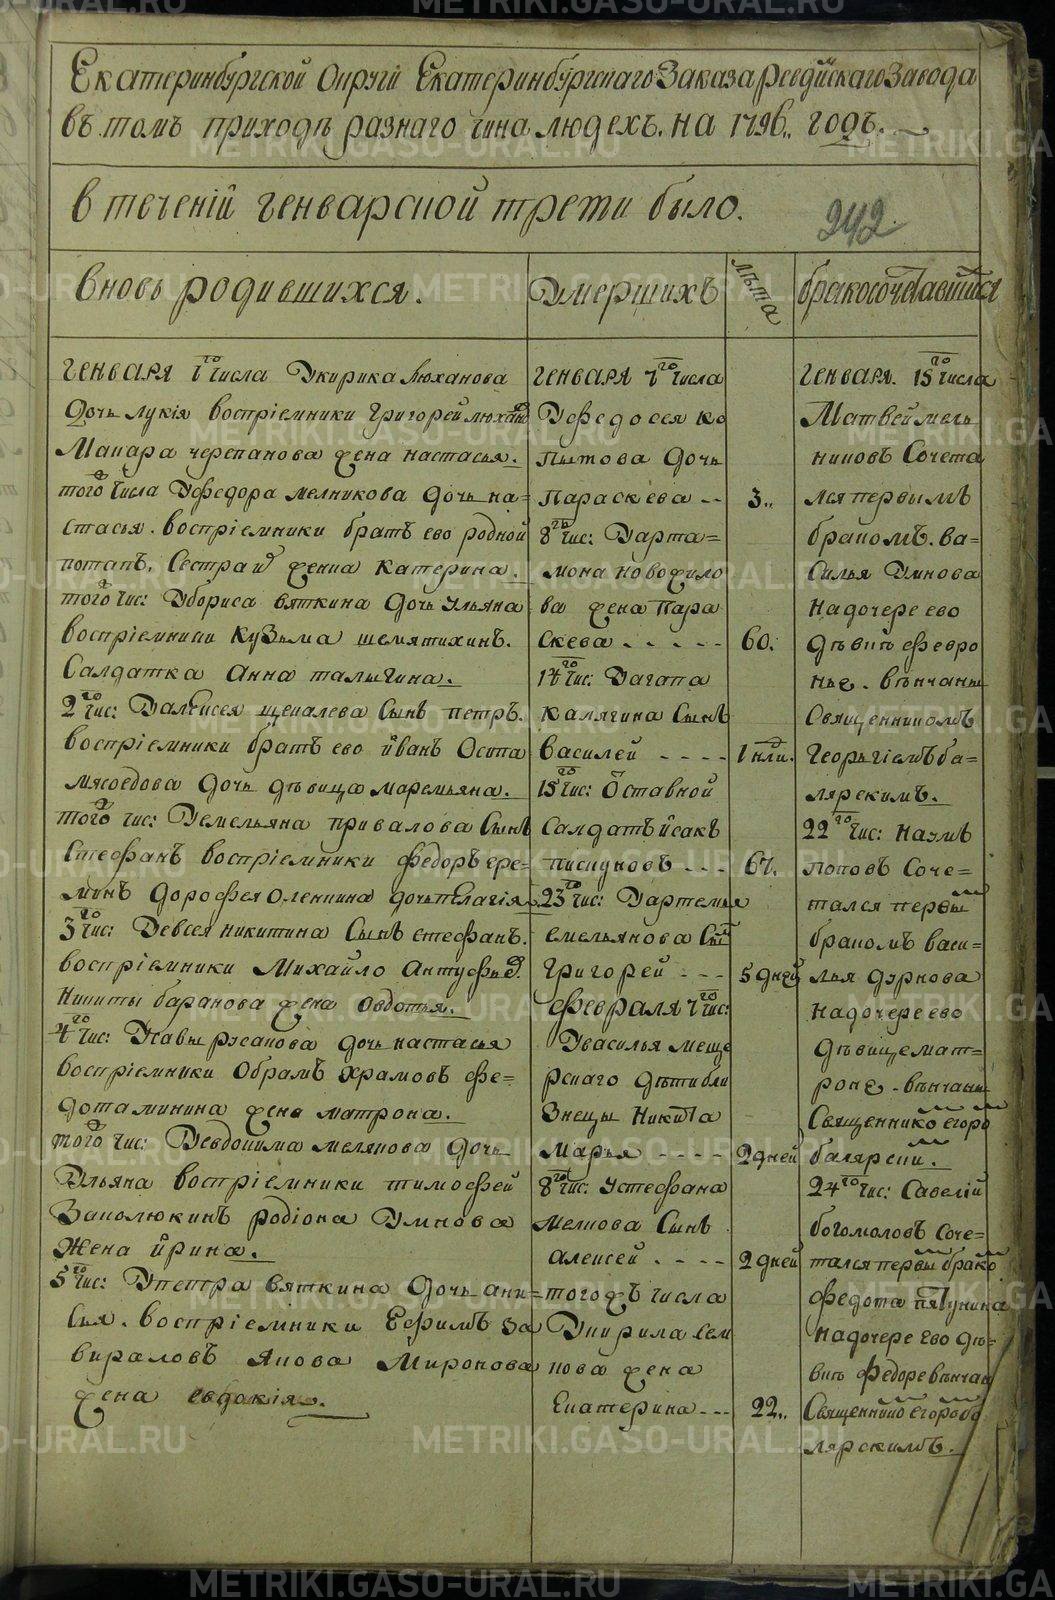 Екатеринбургской Округи Екатеринбургскаго Заказа Ревдинскаго Завода
въ томъ приходѣ разнаго чина людехъ. на 1796,, годъ.
в течениі генварской трети было.
242
вновь родившихся.
Генваря 1го числа Укирика Люханова
дочь Лукія восприемники Григорей Люхановъ
Макара черепанова жена настасья.
того числа Уфедора мелникова дочь на=
стасья. восприемники братъ ево родной
потапъ, Сестра ж фениа катерина.
того чис: Убориса вяткина дочь ульяна
восприемники кузьма шемятихинъ.
Салдатка Анна талыгина.
2го чис: Уалексея щекалева Сынъ петръ.
восприемники братъ ево йванъ Осипа
мясоедова дочь дѣвица маремьяна.
того чис: Уемельяна привалова Сынъ
Стефанъ восприемники федоръ ере=
минъ дорофея Оленина дочь пелагія.
3го чис: Уевсея никитина Сынъ стефанъ.
восприемники Михайло Антуфьевъ
Никиты баранова жена Овдотья.
4го чис: Усавы русанова дочь настасья
восприемники Обрамъ храмовъ фе=
дота минина жена матрона.
того чис: Уевдокима мелянова дочь
Ульяна восприемники тимофей
Заколюкинъ родіона Умнова
Жена йрина.
5го чис: Упетра вяткина дочь ани=
сья. восприемники Ефимъ за
вираловъ якова Миронова
жена евдокія.
Умершихъ
лѣта
Генваря 7го числа
Уфедосея ко
пытова дочь
Параскева -- 3,,
8го чис: Уарта=
мона новофило
ва жена Пара
скева ----- 60.
14го чис: Уагапа
калягина Сынъ
василей ---- 1 нли.
15го чис: Отставной
Салдатъ йсакъ
пискуновъ --- 67.
23го чис: Уартемья
емельянова Сынъ
григорей --- 5 дней
февраля 7го чис:
Увасилья меще
рскаго дѣти бли
знецы Никита
Марья ---- 2 дней
8го чис: Устефана
мелкова Сынъ
алексей ---- 2 дней
тогожъ числа
Укирила Сем
нова жена
Екатерина --- 22,,
бракосочетавшихся
Генваря. 15го числа
Матвей мель
никовъ Сочета
лся первымъ
бракомъ. ва=
силья Умнова
на дочере ево
дѣвице февро
нье. вѣнчаны
священникомъ
Георгіемъ ба=
лярскимъ.
22го чис: наумъ
поповъ Соче=
тался первы
бракомъ васи=
лья дурнова
на дочере ево
дѣвице мат=
роне. вѣнчаны
Священнико егоро
балярски.
24го чис: Савелій
богомоловъ соче=
тался первы брако
федота пятунина
на дочере ево дѣ=
вице федоре вѣнчан
Священнико егоро ба
лярскимъ.